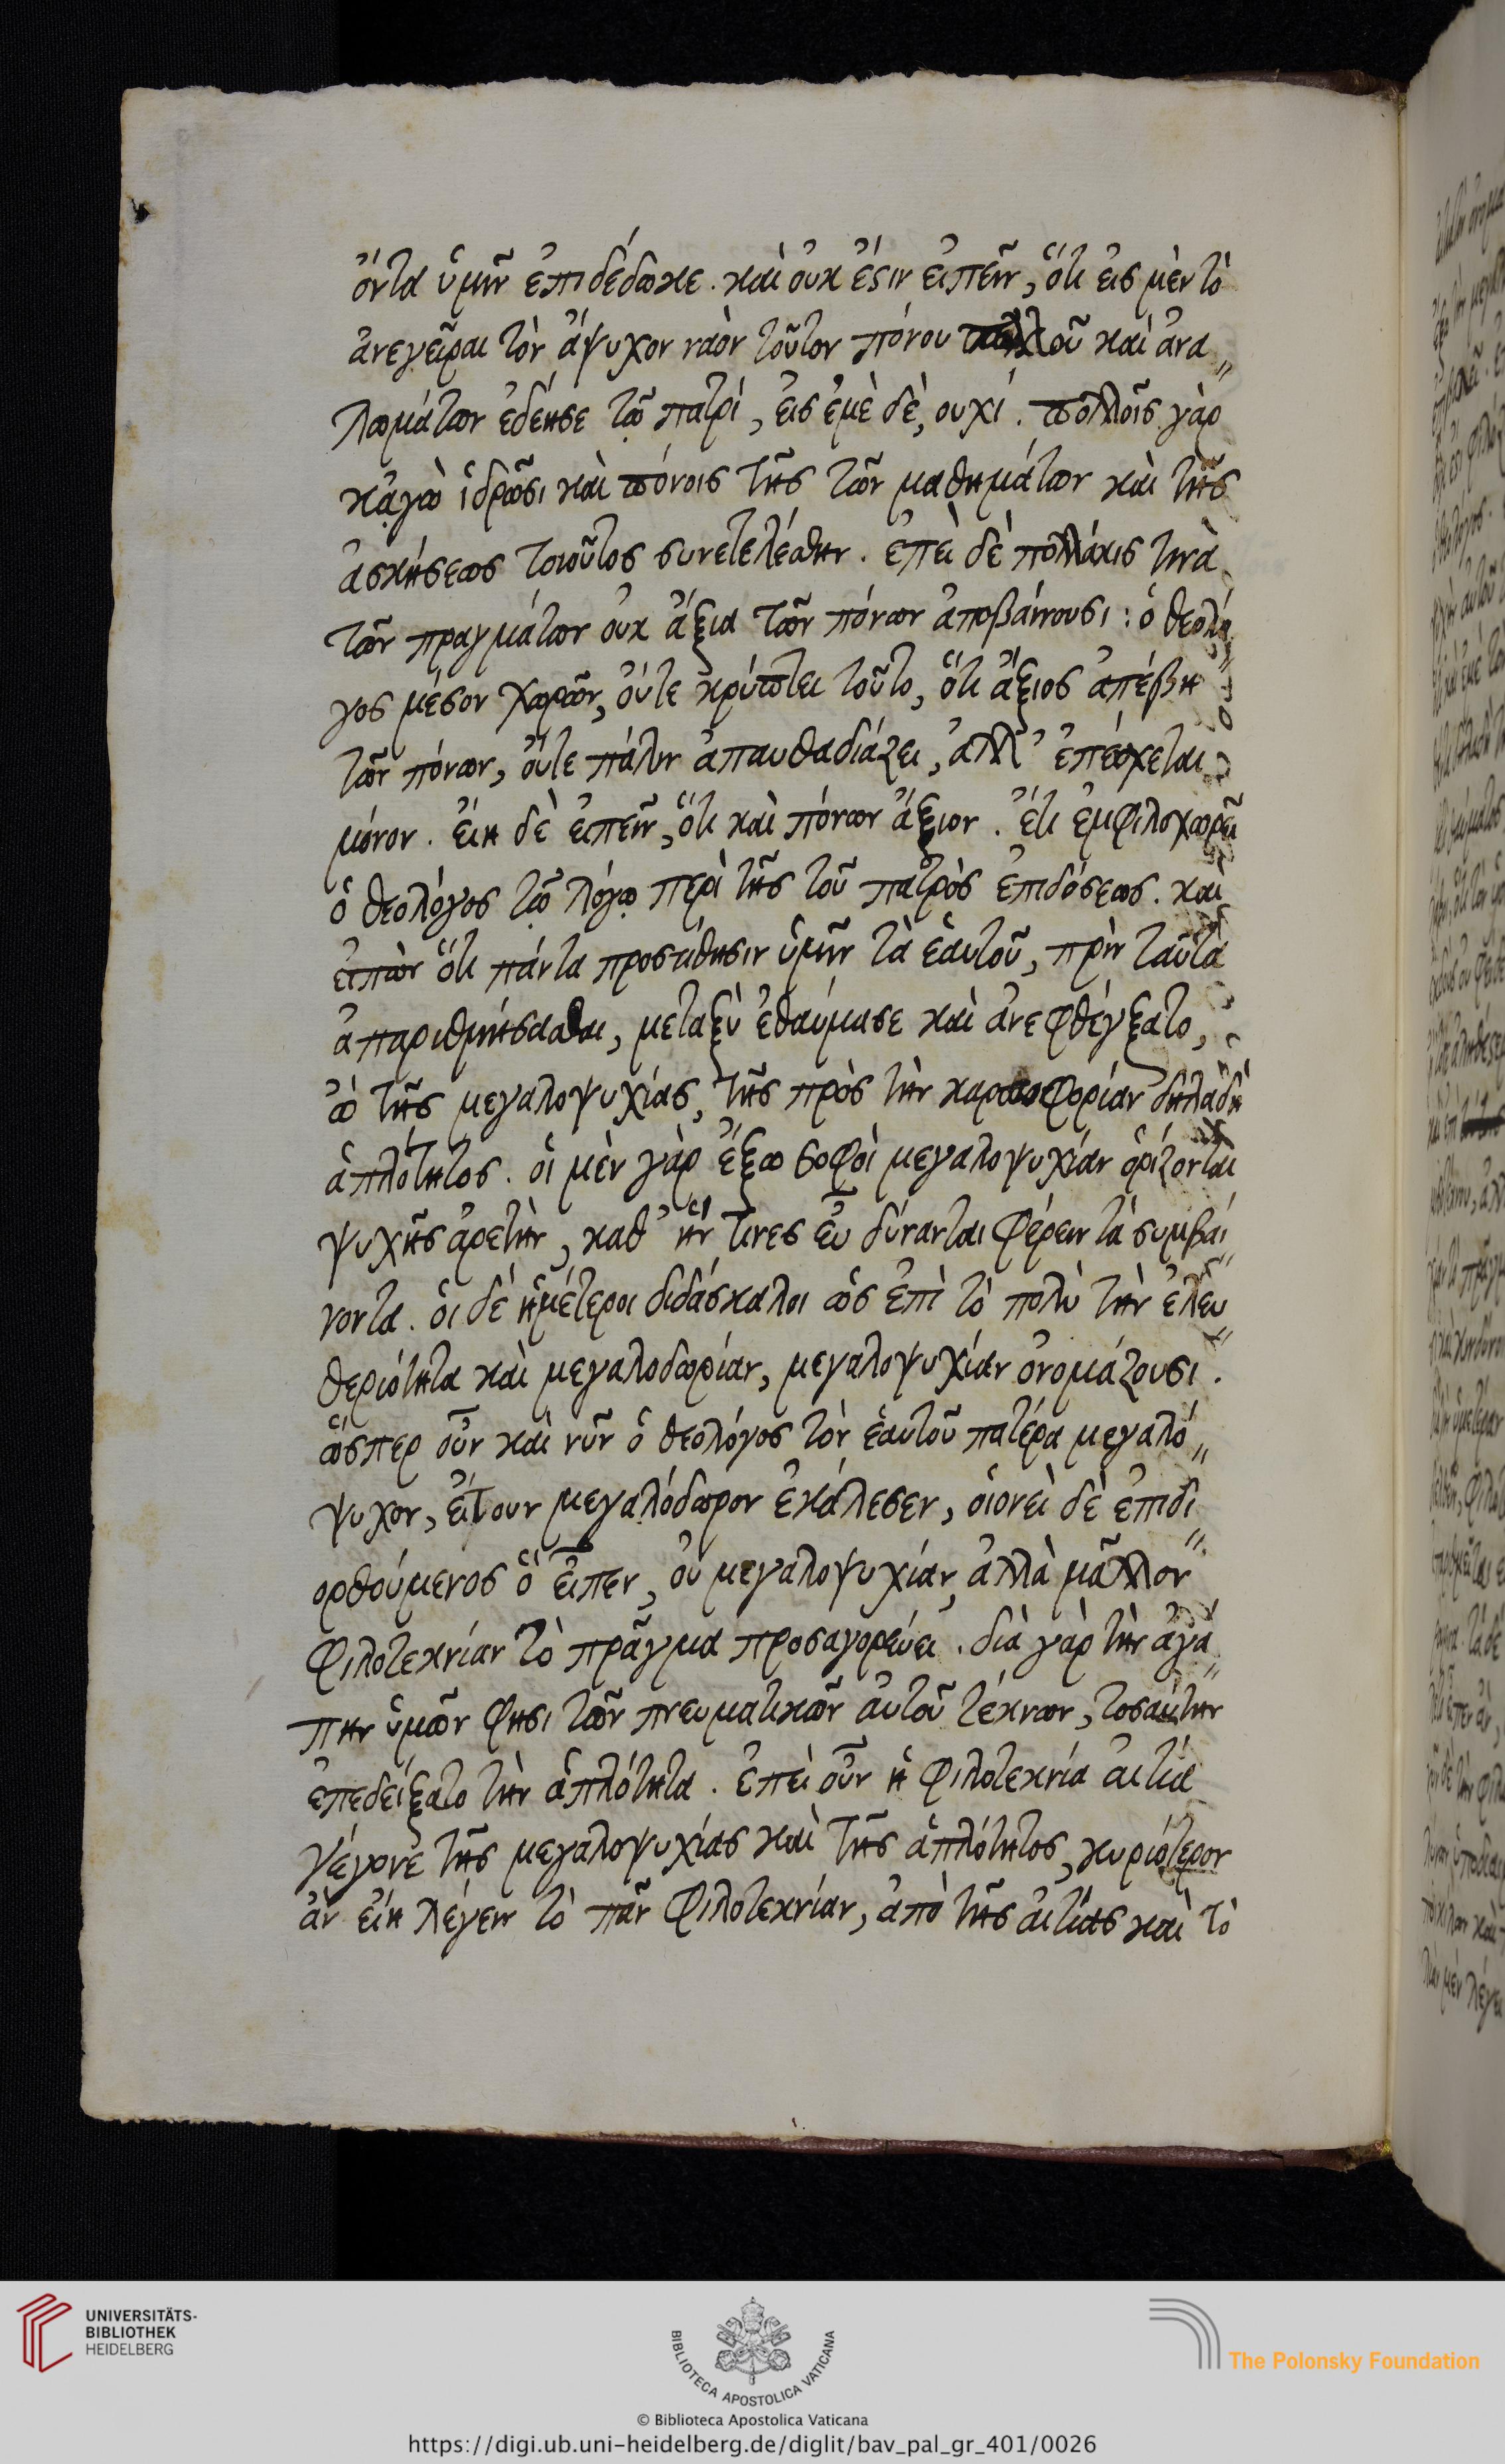 ὄντα ὑμῖν ἐπιδέδωκε. καὶ οὐκ ἔστιν εἰπεῖν, ὅτι εἰς μὲν τὸ
ἀνεγεῖραι τὸν ἄψυχον ναὸν τοῦτον πόνου πολλοῦ καὶ ἀνα„
λωμάτων ἐδέησε τῷ πατρί, εἰς ἐμὲ δὲ, οὐχί. πολλοῖς γὰρ
κᾀγὼ ἱδρῶσι καὶ πόνοις τῆς τῶν μαθημάτων καὶ τῆς
ἀσκήσεως τοιοῦτος συνετελέσθην. ἐπεὶ δὲ πολλάκις τινὰ
τῶν πραγμάτων οὐκ ἄξια τῶν πόνων ἀποβαίνουσι: ὁ θεολό„
γος μέσον χωρῶν, οὔτε κρύπτει τοῦτο, ὅτι ἄξιος ἀπέβη
τῶν πόνων, οὔτε πάλιν ἀπαυθαδιάζει, ἀλλ' ἐπεύχεται
μόνον. εἴη δὲ εἰπεῖν, ὅτι καὶ πόνων ἄξιον. ἔτι ἐμφιλοχωρεῖ
ὁ θεολόγος τῷ λόγῳ περὶ τῆς τοῦ πατρὸς ἐπιδόσεως. καὶ
εἰπὼν ὅτι πάντα προστίθησιν ὑμῖν τὰ ἑαυτοῦ, πρὶν ταῦτα
ἀπαριθμήσασθαι, μεταξὺ ἐθαύμασε καὶ ἀνεφθέγξατο,
ὢ τῆς μεγαλοψυχίας, τῆς πρὸς τὴν καρποφορίαν δηλαδὴ
ἁπλότητος. οἱ μὲν γὰρ ἔξω σοφοὶ μεγαλοψυχίαν ὁρίζονται
ψυχῆς ἀρετὴν, καθ' ἥν τινες εὖ δύνανται φέρειν τὰ συμβαί„
νοντα. οἱ δὲ ἡμέτεροι διδάσκαλοι ὡς ἐπὶ τὸ πολὺ τὴν ἐλευ„
θεριότητα καὶ μεγαλοδωρίαν, μεγαλοψυχίαν ὀνομάζουσι.
ὥσπερ οὖν καὶ νῦν ὁ θεολόγος τὸν ἑαυτοῦ πατέρα μεγαλό„
ψυχον, εἴτουν μεγαλόδωρον ἐκάλεσεν, οἱονεὶ δὲ ἐπιδι„
ορθούμενος ὃ εἶπεν, οὐ μεγαλοψυχίαν, ἀλλὰ μᾶλλον
φιλοτεκνίαν τὸ πρᾶγμα προσαγορεύει. διὰ γὰρ τὴν ἀγά„
πην ὑμῶν φησι τῶν πνευματικῶν αὐτοῦ τέκνων, τοσαύτην
ἐπεδείξατο τὴν ἁπλότητα. ἐπεὶ οὖν ἡ φιλοτεκνία αἰτία
γέγονε τῆς μεγαλοψυχίας καὶ τῆς ἁπλότητος, κυριότερον
ἂν εἴη λέγειν τὸ πᾶν φιλοτεκνίαν, ἀπὸ τῆς αἰτίας καὶ τὸ
UNIVERSITÄTS-
BIBLIOTHEK
HEIDELBERG
BIBLIOTECA APOSTOLICA VATICANA
The Polonsky Foundation
© Biblioteca Apostolica Vaticana
https://digi.ub.uni-heidelberg.de/diglit/bav_pal_gr_401/0026